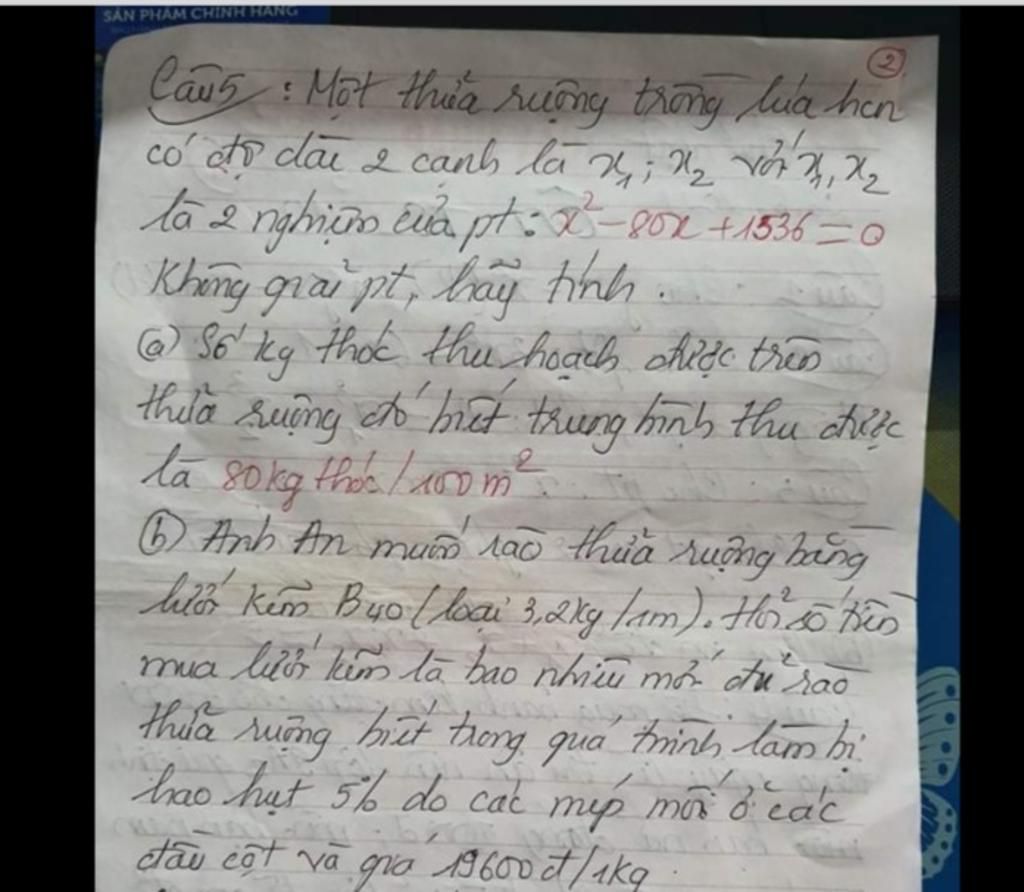 SẢN PHẨM CHÍNH HÃNG
2
Câu5: Một thửa ruộng trồng lúa hcn
có độ dài 2 cạnh là x₁; x₂ với x₁, x₂
là 2 nghiệm của pt: x² - 80x + 1536 = 0
Không giải pt, hãy tính.
(a) Số kg thóc thu hoạch được trên
thửa ruộng đó biết trung bình thu được
là 80kg thóc/100m².
(b) Anh An muốn rào thửa ruộng bằng
lưới kẽm B40 (loại 3,2kg/1m). Hỏi số tiền
mua lưới kẽm là bao nhiêu mới đủ rào
thửa ruộng biết trong quá trình làm bị
hao hụt 5% do các mép mối ở các
đầu cột và giá 19600đ/1kg.